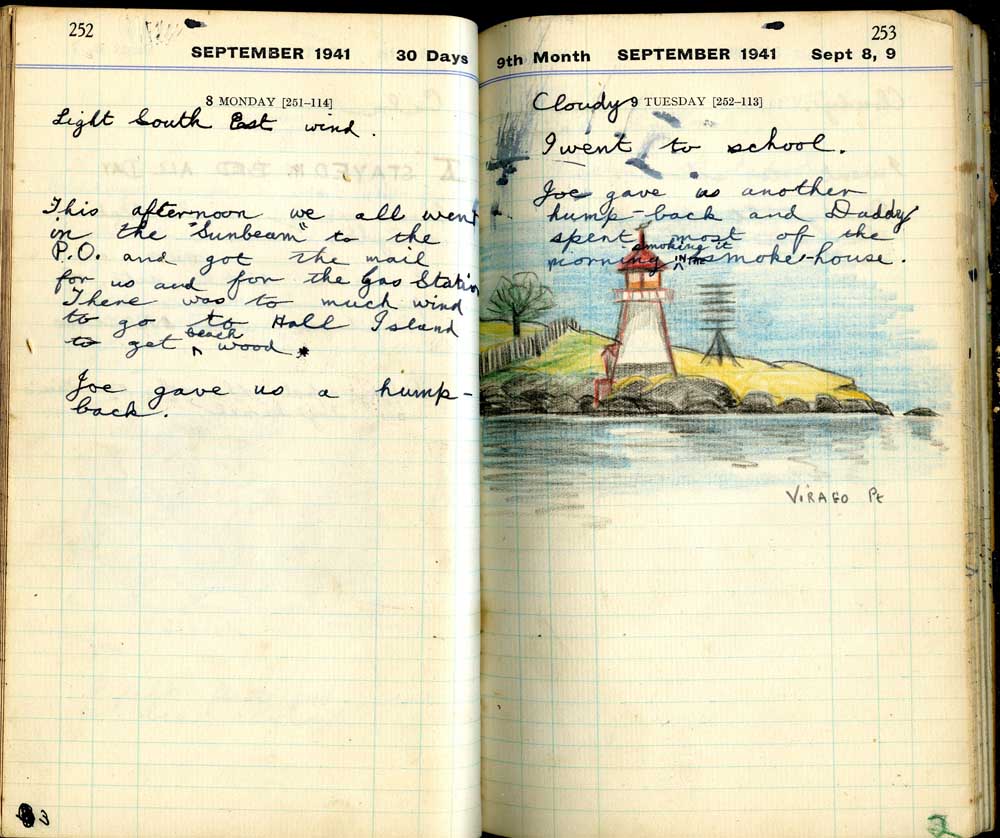 252
SEPTEMBER 1941 30 Days
8 MONDAY [251–114]
Light South East wind.
This afternoon we all went
in the "Sunbeam" to the
P.O. and got the mail
for us and for the Gas Station
There was to much wind
to go to Hall Island
to get beach wood
Joe gave us a hump-
back.
3
253
9th Month SEPTEMBER 1941 Sept 8, 9
Cloudy 9 TUESDAY [252–113]
I went to school.
Joe gave us another
hump-back and Daddy
spent most of the
smoking it
morning IN THE smoke-house.
VIRAGO Pt
2